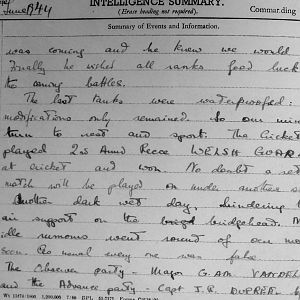 June 1944
INTELLIGENCE SUMMARY.
(Erase heading not required).
Commanding
Summary of Events and Information.
was coming and he knew we would
Finally he wished all ranks good luck
the coming battles.
The last tanks were waterproofed:
modifications only remained. So our min
turn to rest and sport. The Cricket
played 2nd Armd Recce WELSH GUAR
at cricket and won. No doubt a ret
match will be played on under another s
Another dark wet day, hindering t
air support on the bridgehead. M
idle rumours went round of our mo
soon. As usual every one was false
The Observer party - Major G.A.M. VANDEL
and the Advance party - Capt J.R.